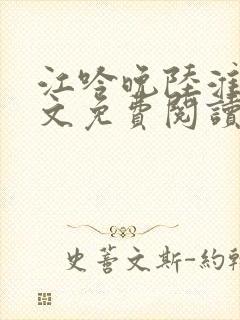 江吟晚陸淮
文免費閱讀
史蒈文斯-約翰